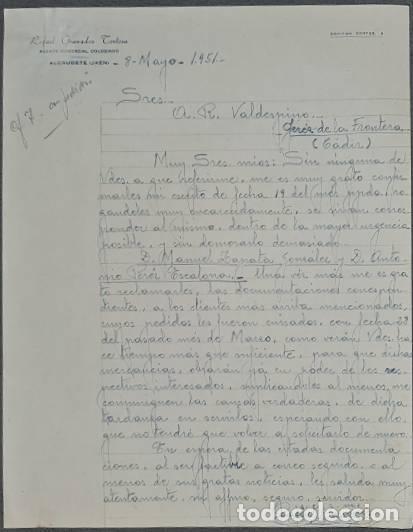 Rafael Granados Tortosa
AGENTE COMERCIAL COLEGIADO
ALCAUDETE (JAÉN) - 8-Mayo-1.951.-
HERNÁN CORTÉS, 4
Sres.
A. R. Valdespino.
Jeréz de la Frontera
(Cádiz)
Muy Sres. mios: Sin ninguna de
Vdes. a que referirme, me es muy grato confir-
marles mi escrito de fecha 19 del mes ppdo. ro-
gandoles muy encarecidamente, se sirvan corres-
ponder al mismo, dentro de la mayor urgencia
posible, y sin demorarlo demasiado.
D. Manuel Zanata Gonzalez y D. Anto-
nio Peréz Escalona.- Una véz más me es gra-
to reclamarles, las documentaciones correspon-
dientes, a los clientes más arriba mencionados,
cuyos pedidos les fueron cursados, con fecha 28
del pasado mes de Marzo, como verán Vdes. ha-
ce tiempo más que suficiente, para que dichas
mercancias, obraran ya en poder de los res-
pectivos interesados, suplicandoles al menos, me
comuniquen las causas verdaderas, de dicha
tardanza en servirlos, esperando con ello
que no tendré que volver a solicitarlo de nuevo.
En espera de las citadas documenta
ciones, al ser factible a correo seguido, o al
menos de sus gratas noticias, les saluda muy
atentamente, su affmo. seguro servidor.
todocoleccion.net